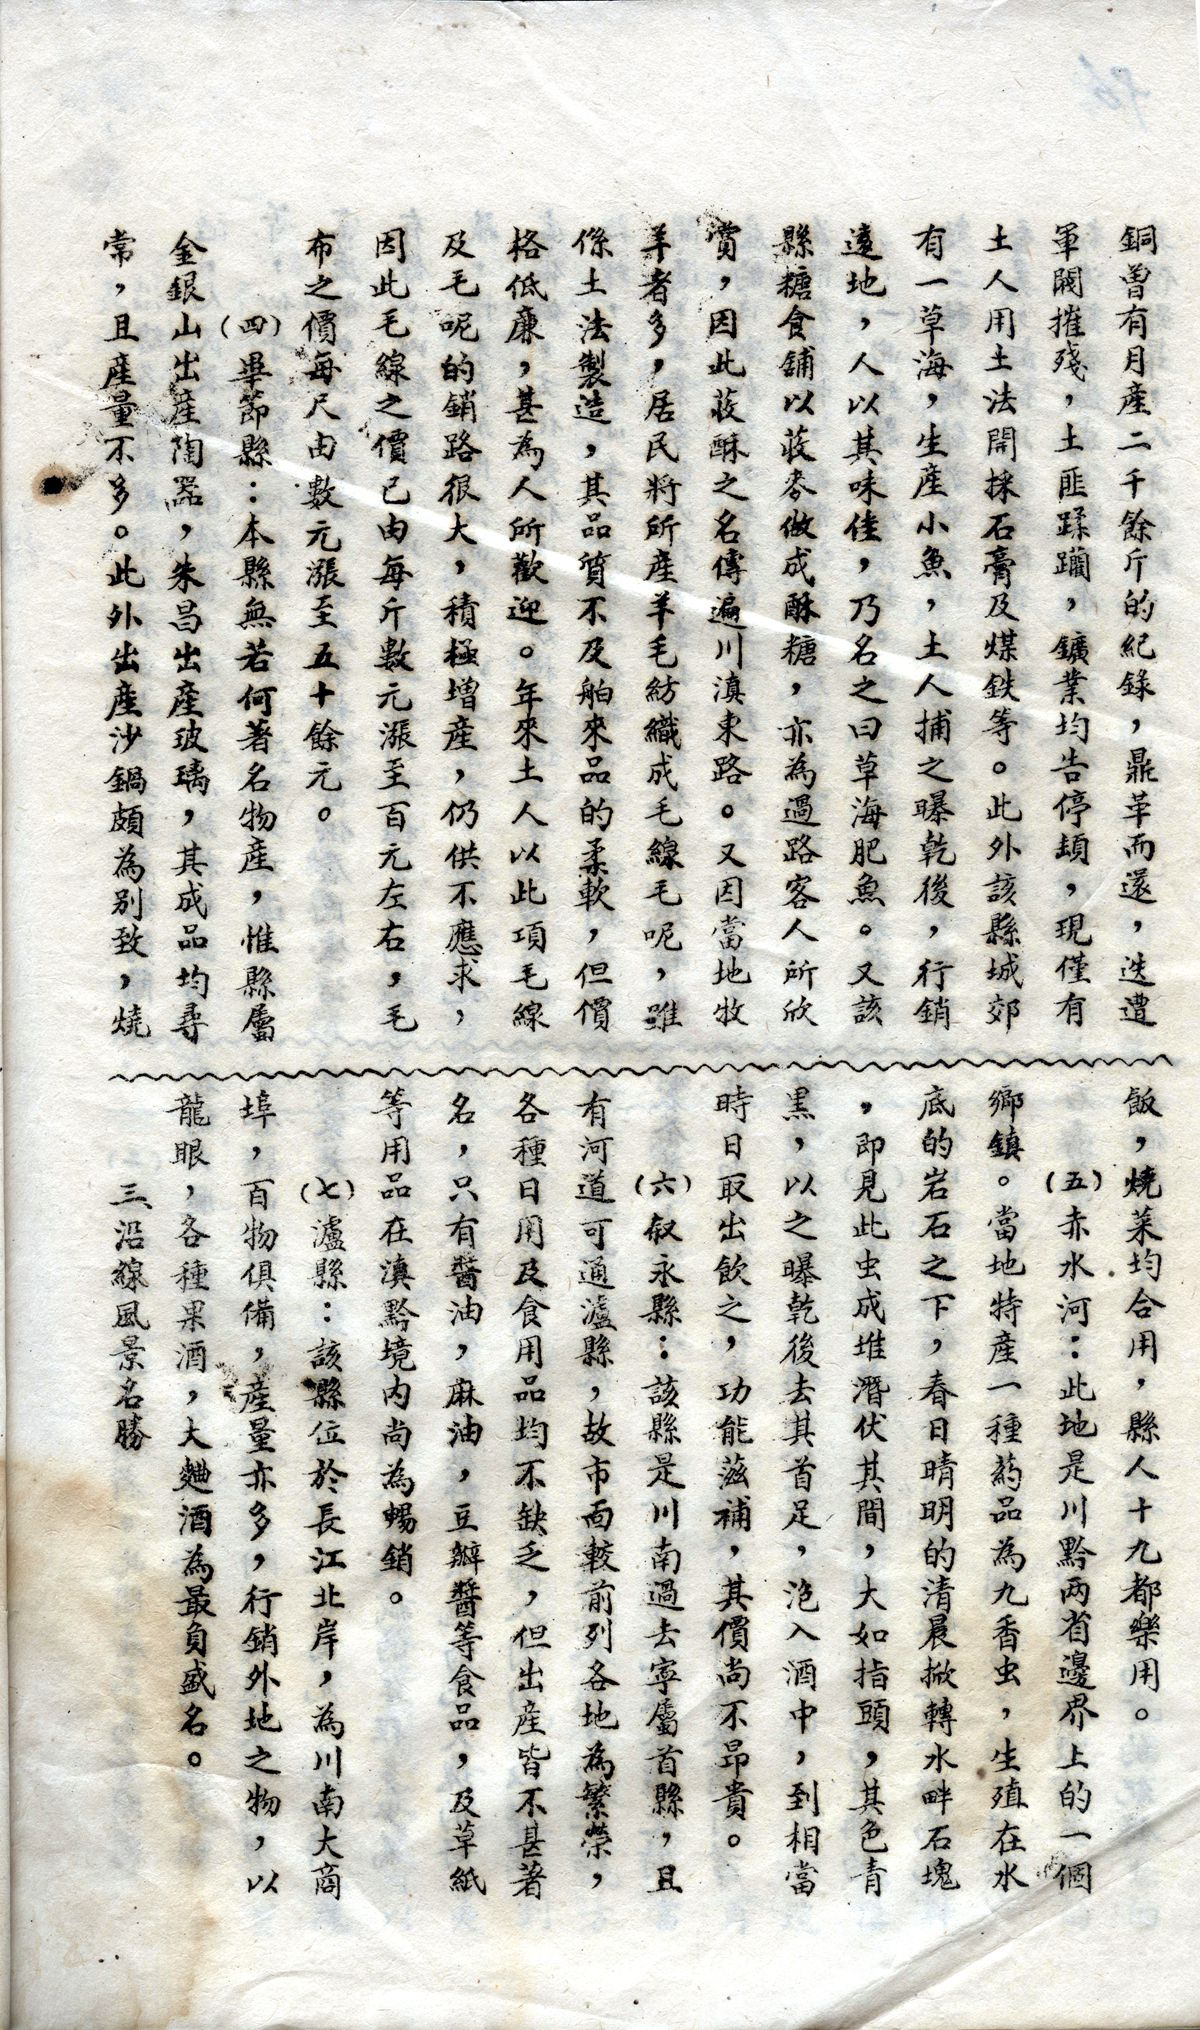 銅曾有月產二千餘斤的紀錄，鼎革而還，迭遭
軍閥摧殘，土匪蹂躪，鑛業均告停頓，現僅有
土人用土法開採石膏及煤鉄等。此外該縣城郊
有一草海，生產小魚，土人捕之曝乾後，行銷
遠地，人以其味佳，乃名之曰草海肥魚。又該
縣糖食舖以荍麥做成酥糖，亦為過路客人所欣
賞，因此荍酥之名傳遍川滇東路。又因當地牧
羊者多，居民將所產羊毛紡織成毛線毛呢，雖
係土法製造，其品質不及舶來品的柔軟，但價
格低廉，甚為人所歡迎。年來土人以此項毛線
及毛呢的銷路很大，積極增產，仍供不應求，
因此毛線之價已由每斤數元漲至百元左右，毛
布之價每尺由數元漲至五十餘元。
（四）畢節縣：本縣無若何著名物產，惟縣屬
金銀山出產陶器，朱昌出產玻璃，其成品均尋
常，且產量不多。此外出產沙鍋頗為別致，燒
飯，燒菜均合用，縣人十九都樂用。
（五）赤水河：此地是川黔両省邊界上的一個
鄉鎮。當地特產一種葯品為九香虫，生殖在水
底的岩石之下，春日晴明的清晨掀轉水畔石塊
，即見此虫成堆潛伏其間，大如指頭，其色青
黑，以之曝乾後去其首足，泡入酒中，到相當
時日取出飲之，功能滋補，其價尚不昻貴。
（六）叙永縣：該縣是川南過去寧屬首縣，且
有河道可通瀘縣，故市面較前列各地為繁榮，
各種日用及食用品均不缺乏，但出產皆不甚著
名，只有醬油，麻油，豆瓣醬等食品，及草紙
等用品在滇黔境內尚為暢銷。
（七）瀘縣：該縣位於長江北岸，為川南大商
埠，百物俱備，產量亦多，行銷外地之物，以
龍眼，各種果酒，大麯酒為最負盛名。
三、沿線風景名勝